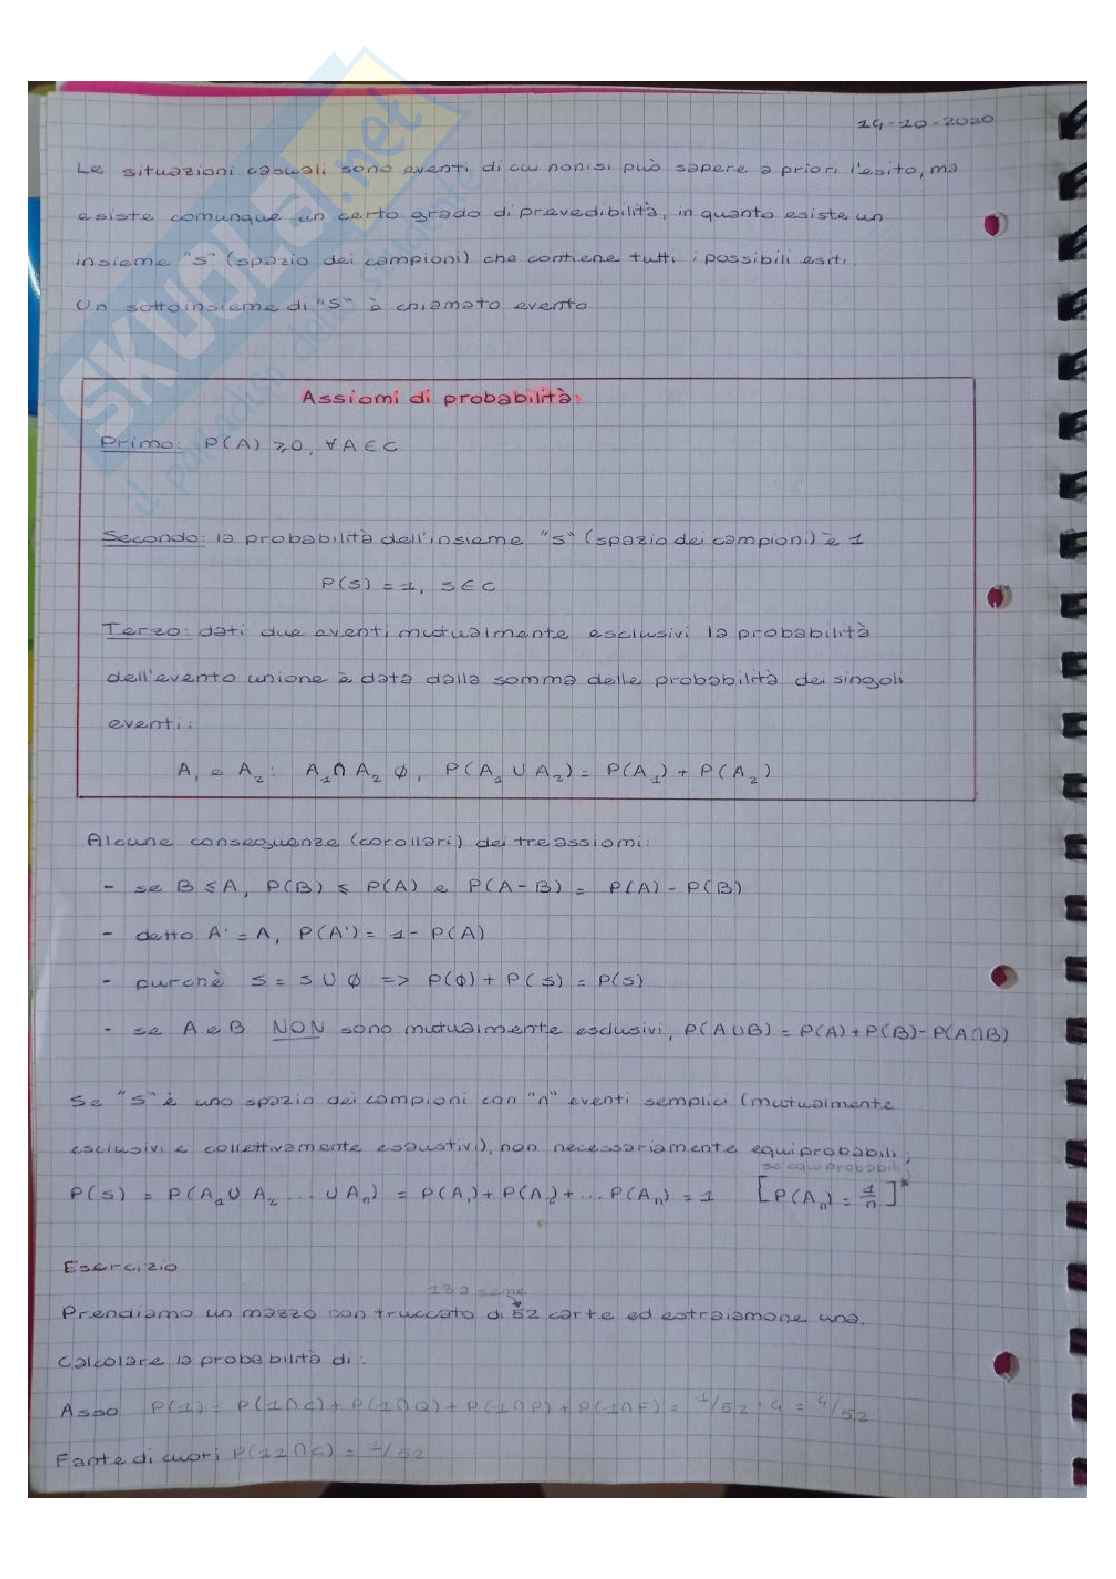 14-10-2020
Le situazioni casuali sono eventi di cui non si può sapere a priori l'esito, ma
esiste comunque un certo grado di prevedibilità, in quanto esiste un
insieme "S" (spazio dei campioni) che contiene tutti i possibili esiti.
Un sottoinsieme di "S" è chiamato evento
SKUOLA.net
il paradiso dello studente
Assiomi di probabilità:
Primo: P(A) ≥ 0, ∀ A ∈ C
Secondo: la probabilità dell'insieme "S" (spazio dei campioni) è 1
P(S) = 1, S ∈ C
Terzo: dati due eventi mutualmente esclusivi la probabilità
dell'evento unione è data dalla somma delle probabilità dei singoli
eventi:
A₁ e A₂: A₁ ∩ A₂ ∅, P(A₁ ∪ A₂) = P(A₁) + P(A₂)
Alcune conseguenze (corollari) dei tre assiomi:
- se B ≤ A, P(B) ≤ P(A) e P(A-B) = P(A) - P(B)
- detto A' = A, P(A') = 1 - P(A)
- purché S = S ∪ ∅ => P(∅) + P(S) = P(S)
- se A e B NON sono mutualmente esclusivi, P(A∪B) = P(A) + P(B) - P(A∩B)
Se "S" è uno spazio dei campioni con "n" eventi semplici (mutualmente
esclusivi e collettivamente esaustivi), non necessariamente equiprobabili,
se equiprobabili
P(S) = P(A₁ ∪ A₂ ... ∪ Aₙ) = P(A₁) + P(A₂) + ... P(Aₙ) = 1 [P(Aₙ) = 1/n]*
Esercizio
13 a seme
Prendiamo un mazzo non truccato di 52 carte ed estraiamone una.
Calcolare la probabilità di:
Asso P(1) = P(1∩C) + P(1∩Q) + P(1∩P) + P(1∩F) = 1/52 · 4 = 4/52
Fante di cuori P(12∩C) = 1/52